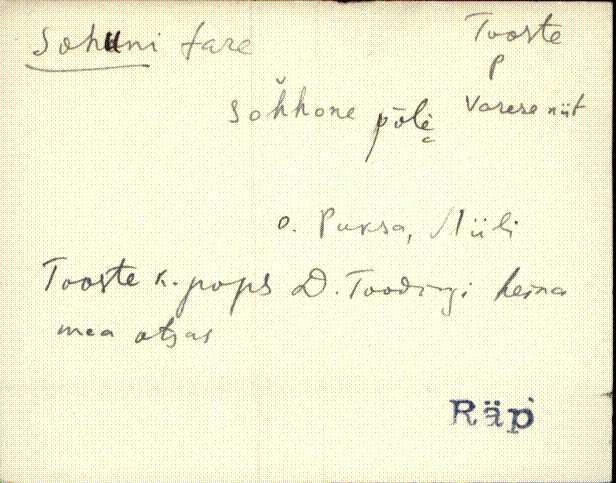 Sohuni tare
Tooste
P
Varese niit
sohhone põle
o. Puksa, Miili
Tooste k. pops D. Toodingi heina
mea otsas
Räp